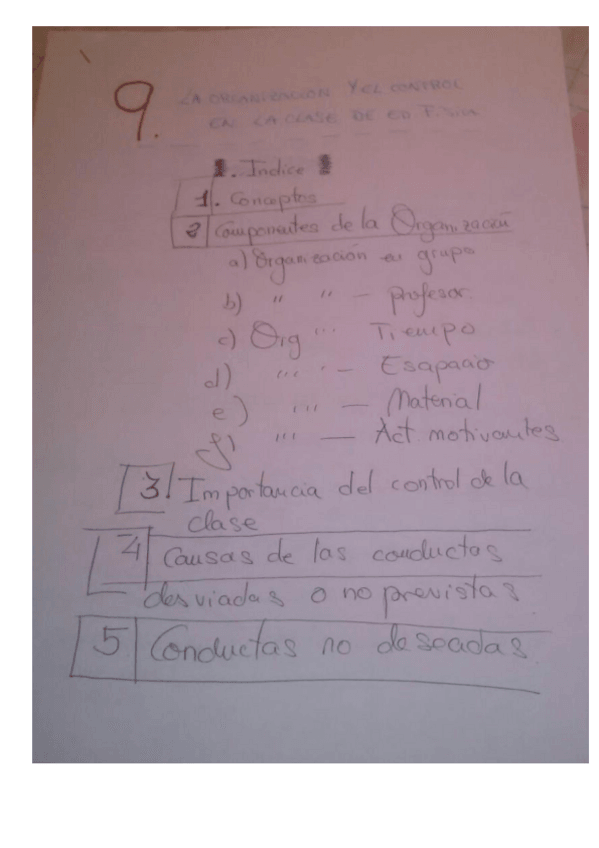 9.
LA ORGANIZACION Y EL CONTROL
EN LA CLASE DE ED FISICA
. Indice
1. Conceptos
2 Componentes de la Organización
a) Organización en grupo
b) " " - profesor.
c) Org "" Tiempo
d) "" - Esapacio
e) "" - Material
f) "" - Act. motivantes
3. Importancia del control de la
clase
4 Causas de las conductas
desviadas o no previstas
5 Conductas no deseadas